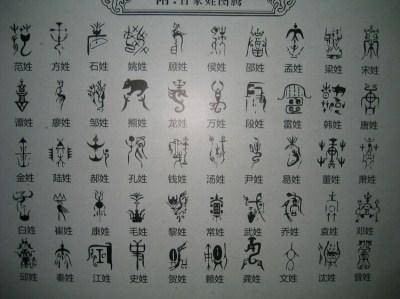 附:百家姓图腾
范姓 方姓 石姓 姚姓 顾姓 侯姓 邵姓 孟姓 梁姓 宋姓
谭姓 廖姓 邹姓 熊姓 龙姓 万姓 段姓 雷姓 韩姓 唐姓
金姓 陆姓 郝姓 孔姓 钱姓 汤姓 尹姓 易姓 董姓 萧姓
白姓 崔姓 康姓 毛姓 黎姓 常姓 武姓 乔姓 袁姓 邓姓
邱姓 秦姓 江姓 史姓 贺姓 赖姓 龚姓 文姓 沈姓 曾姓